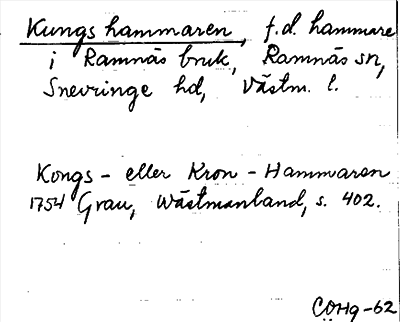 Kungshammaren, f.d. hammare
i Ramnäs bruk, Ramnäs sn,
Snevringe hd, Västm. l.
Kongs- eller Kron-Hammaren
1754 Grau, Wästmanland, s. 402.
COHg-62